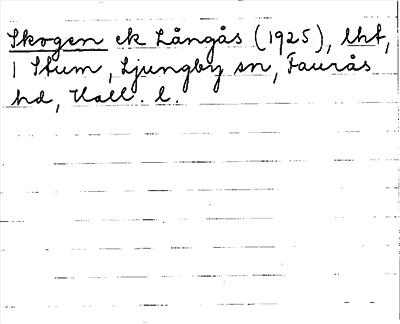 Skogen ek Långås (1925), lht,
1 Stum, Ljungby sn, Faurås
hd, Hall. l.